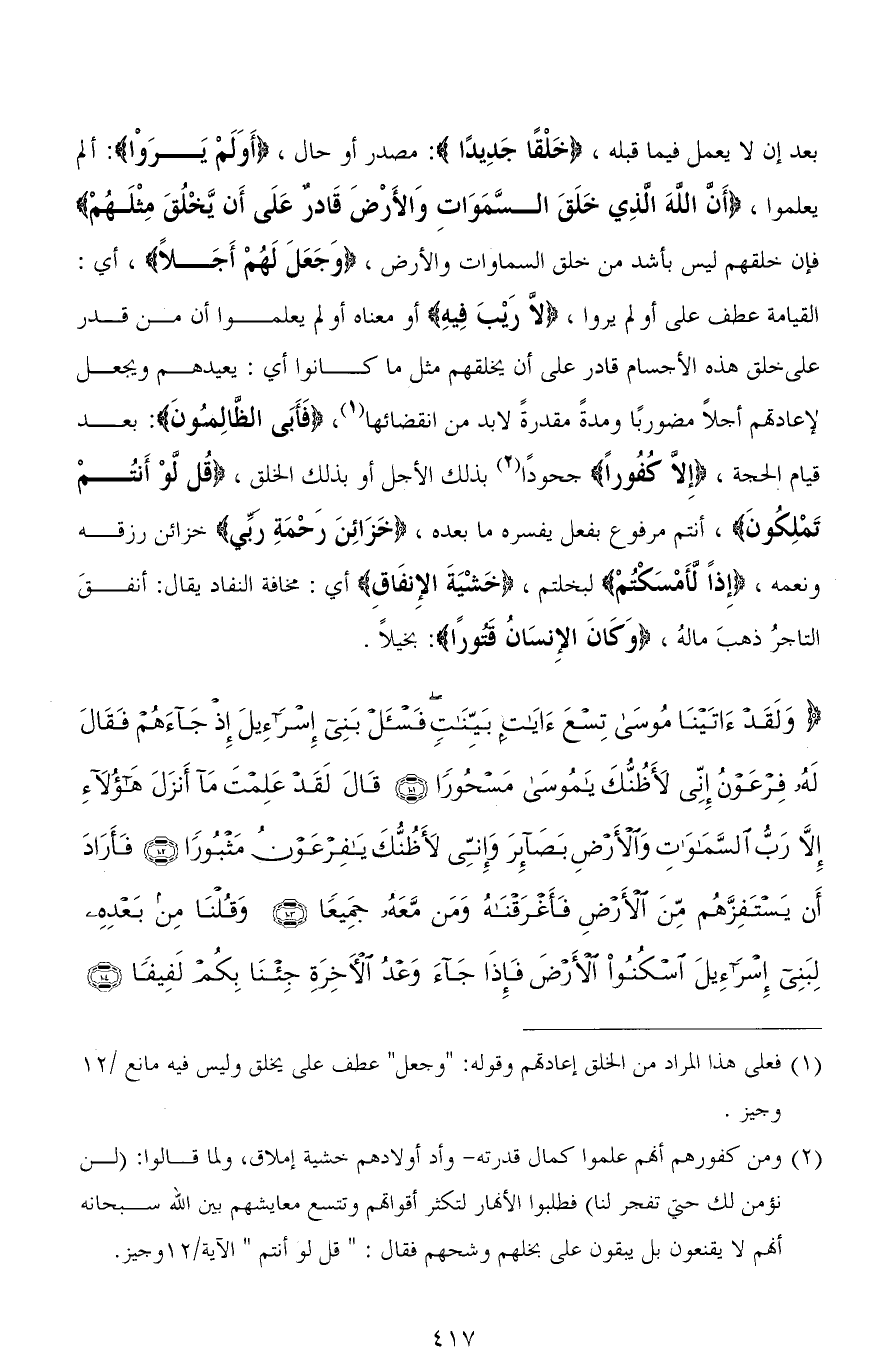 بعد إن لا يعمل فيما قبله ، ﴿خَلْقًا جَدِيدًا ﴾: مصدر أو حال ، ﴿أَوَلَمْ يَــــرَوْا﴾: ألم
يعلموا ، ﴿أَنَّ اللَّهَ الَّذِي خَلَقَ الـــسَّمَوَاتِ وَالأَرْضَ قَادرٌ عَلَى أَن يَّخْلُقَ مِثْلَــهُمْ﴾
فإن خلقهم ليس بأشد من خلق السماوات والأرض ، ﴿وَجَعَلَ لَهُمْ أَجَـــلاً﴾ ، أي :
القيامة عطف على أو لم يروا ، ﴿لاَّ رَيْبَ فِيهِ﴾ أو معناه أو لم يعلمـــــوا أن مـــن قـــدر
على خلق هذه الأجسام قادر على أن يخلقهم مثل ما كـــــانوا أي : يعيدهـــم ويجعـــل
لإعادتهم أجلاً مضوربًا ومدةً مقدرةً لابد من انقضائها(١)، ﴿فَأَبَى الظَّالِمُونَ﴾: بعـــد
قيام الحجة ، ﴿إِلاَّ كُفُوراً﴾ جحودًا(٢) بذلك الأجل أو بذلك الخلق ، ﴿قُل لَّوْ أَنتُـــمْ
تَمْلِكُونَ﴾ ، أنتم مرفوع بفعل يفسره ما بعده ، ﴿خَزَائِنَ رَحْمَةِ رَبِّي﴾ خزائن رزقـــه
ونعمه ، ﴿إِذاً لَّأَمْسَكْتُمْ﴾ لبخلتم ، ﴿خَشْيَةَ الإِنفَاقِ﴾ أي : مخافة النفاد يقال: أنفـــقَ
التاجرُ ذهبَ مالهُ ، ﴿وَكَانَ الإِنسَانُ قَتُورًا﴾: بخيلاً .
۞ وَلَقَدۡ ءَاتَيۡنَا مُوسَىٰ تِسۡعَ ءَايَٰتِۭ بَيِّنَٰتٖۖ فَسۡـَٔلۡ بَنِيٓ إِسۡرَٰٓءِيلَ إِذۡ جَآءَهُمۡ فَقَالَ
لَهُۥ فِرۡعَوۡنُ إِنِّي لَأَظُنُّكَ يَٰمُوسَىٰ مَسۡحُورٗا ١٠١ قَالَ لَقَدۡ عَلِمۡتَ مَآ أَنزَلَ هَٰٓؤُلَآءِ
إِلَّا رَبُّ ٱلسَّمَٰوَٰتِ وَٱلۡأَرۡضِ بَصَآئِرَ وَإِنِّي لَأَظُنُّكَ يَٰفِرۡعَوۡنُ مَثۡبُورٗا ١٠٢ فَأَرَادَ
أَن يَسۡتَفِزَّهُم مِّنَ ٱلۡأَرۡضِ فَأَغۡرَقۡنَٰهُ وَمَن مَّعَهُۥ جَمِيعٗا ١٠٣ وَقُلۡنَا مِنۢ بَعۡدِهِۦ
لِبَنِيٓ إِسۡرَٰٓءِيلَ ٱسۡكُنُواْ ٱلۡأَرۡضَ فَإِذَا جَآءَ وَعۡدُ ٱلۡأٓخِرَةِ جِئۡنَا بِكُمۡ لَفِيفٗا ١٠٤
(١) فعلى هذا المراد من الخلق إعادتهم وقوله: "وجعل" عطف على يخلق وليس فيه مانع /١٢
وجيز .
(٢) ومن كفورهم أنهم علموا كمال قدرته- وأد أولادهم خشية إملاق، ولما قـــالوا: (لـــن
نؤمن لك حتى تفجر لنا) فطلبوا الأنهار لتكثر أقواتهم وتتسع معايشهم بين الله ســبحانه
أنهم لا يقنعون بل يبقون على بخلهم وشحهم فقال : " قل لو أنتم " الآية/١٢وجيز.
٤١٧